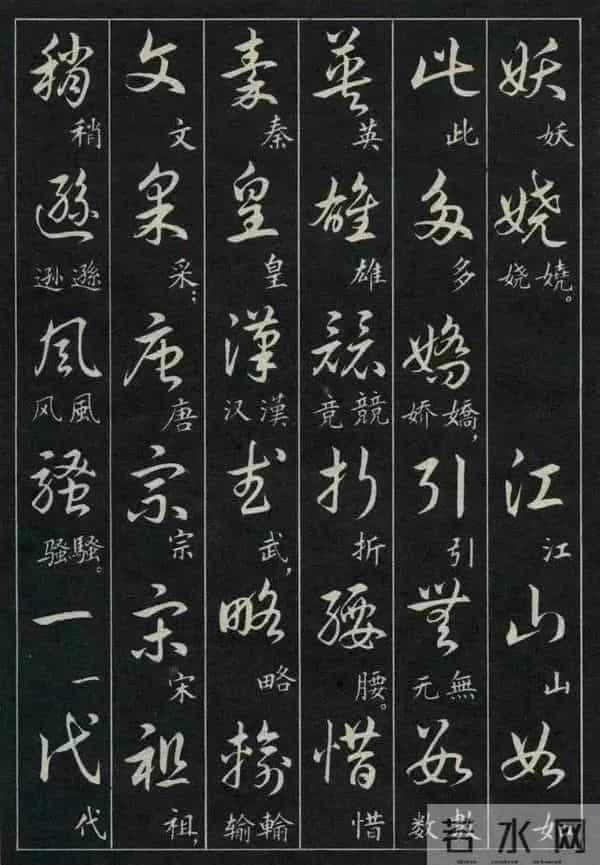 妖 妖 嬈 嬈。娆 江 江 山 山 如 如
此 此 多 多 嬌 嬌，娇 引 引 無 無 无 數 數 数
英 英 雄 雄 競 競 竞 折 折 腰 腰。 惜 惜
秦 秦 皇 皇 漢 漢 汉 武 武， 略 略 輸 輸 输
文 文 采 采； 唐 唐 宗 宗 宋 宋 祖 祖，
稍 稍 遜 遜 逊 風 風 风 騷 騷。骚 一 一 代 代
若水网